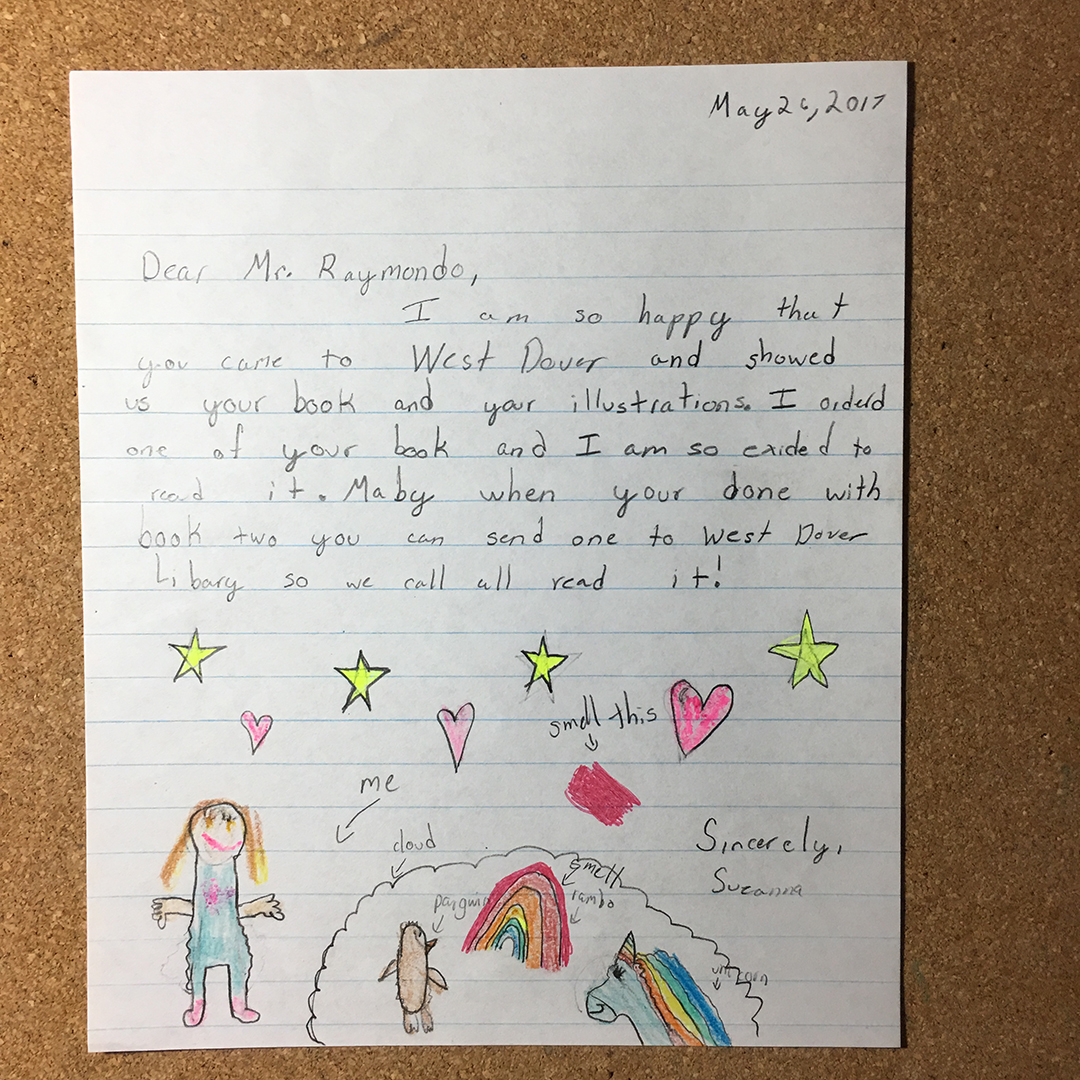 May 26, 2017
Dear Mr. Raymondo,
I am so happy that
you came to West Dover and showed
us your book and your illustrations. I orderd
one of your book and I am so exided to
read it. Maby when your done with
book two you can send one to West Dover
Libary so we call all read it!
smell this
me
cloud
smell
panguin
rambo
Sincerely,
Suzanna
unicoin